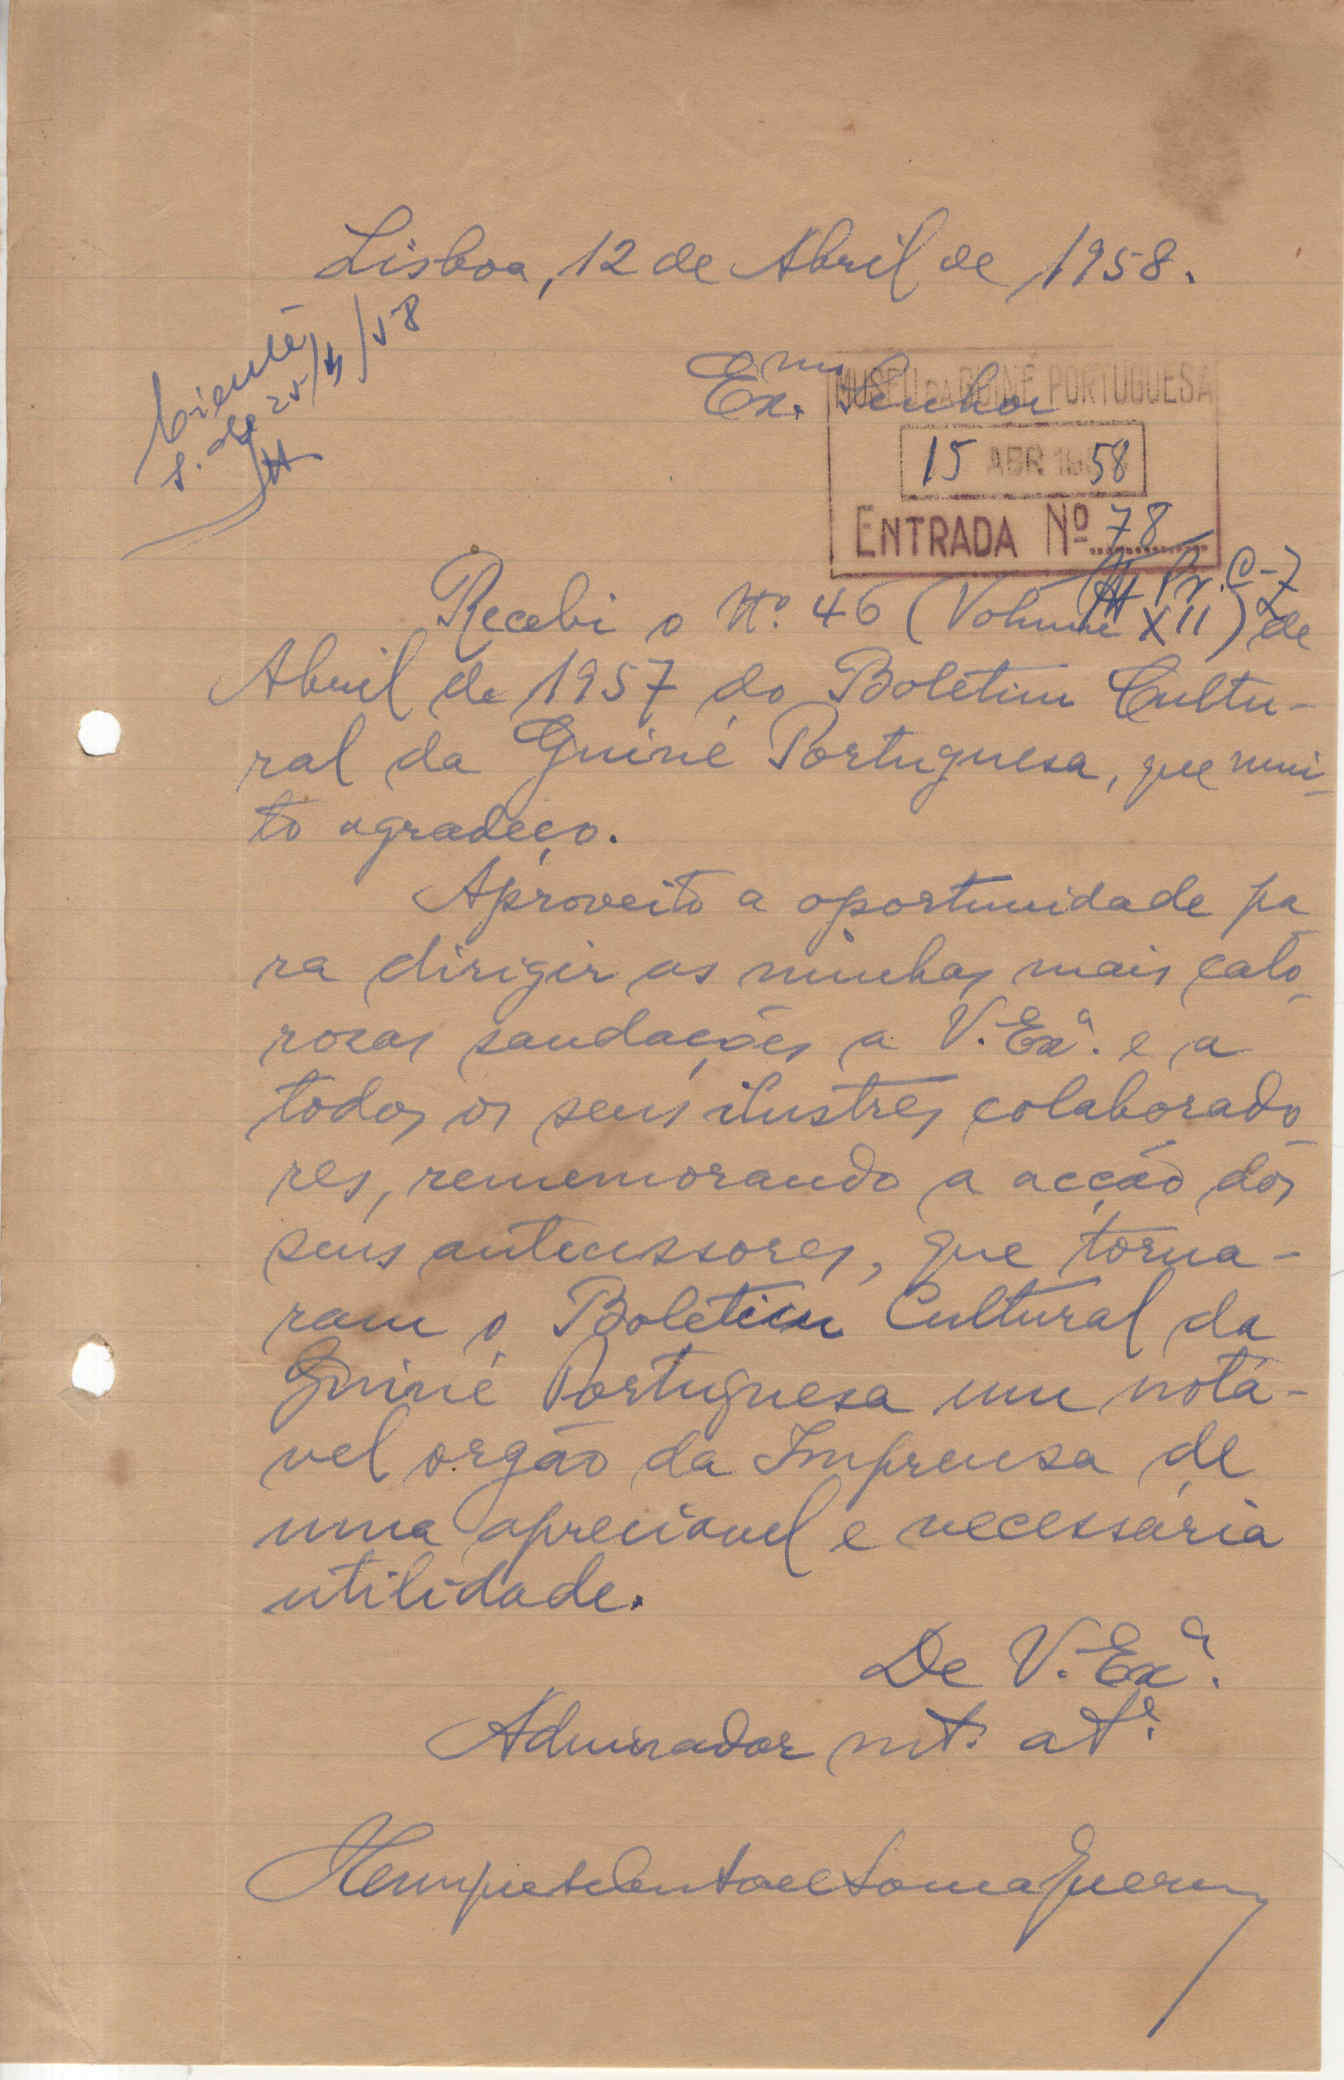 Lisboa, 12 de Abril de 1958.
Ciente
25/4/58
Ex.mo Senhor
MUSEU DA GUINÉ PORTUGUESA
15 ABR 1958
ENTRADA Nº 78
Pr. C-7
Recebi o Nº. 46 (Volume XII) de
Abril de 1957 do Boletim Cultu-
ral da Guiné Portuguesa, que mui-
to agradeço.
Aproveito a oportunidade pa
ra dirigir as minhas mais calo
rosas saudações a V. Exª. e a
todos os seus ilustres colaborado
res, rememorando a acção dos
seus antecessores, que torna-
ram o Boletim Cultural da
Guiné Portuguesa um notá-
vel orgão da Imprensa de
uma apreciavel e necessária
utilidade.
De V. Exª.
Admirador mt. atº.